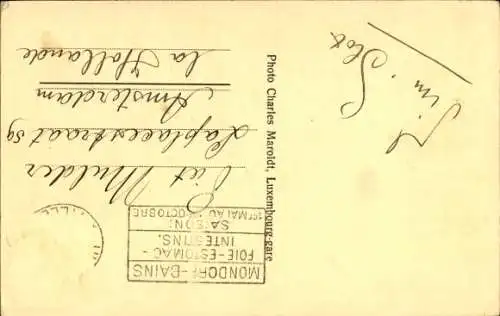 Piet Mulder
Laplacestraat 59
Amsterdam
la Hollande
Photo Charles Maroldt, Luxembourg-gare
MONDORF-BAINS
FOIE-ESTOMAC-
INTESTINS.
SAISON:
1er MAI AU OCTOBRE